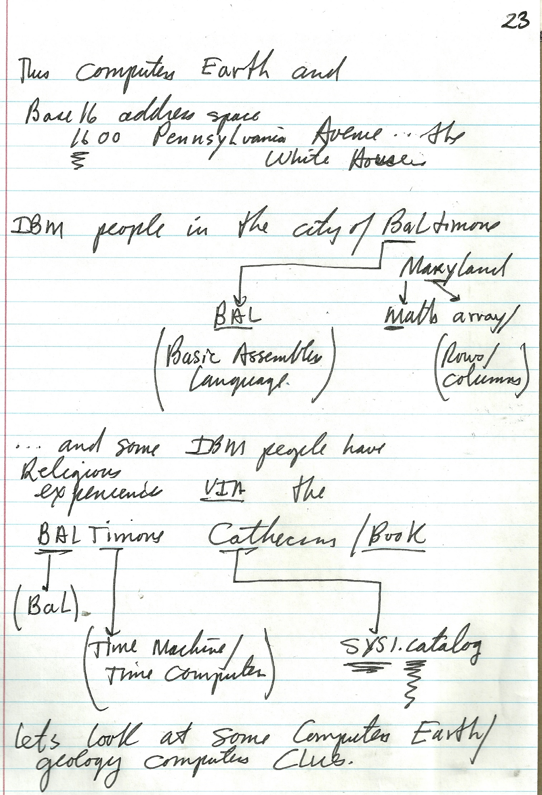 23
This computer Earth and
Base 16 address space
1600 Pennsylvania Avenue... the
White House
IBM people in the city of Baltimore
Maryland
BAL
Math array/
(Basic Assembler
Language)
(Rows/
columns)
... and some IBM people have
Religious
experiences VIA the
BALTimore Cathecism / Book
(Bal)
(Time Machine/
Time Computer)
SYS1.catalog
Lets look at some Computer Earth/
geology computer Clue.